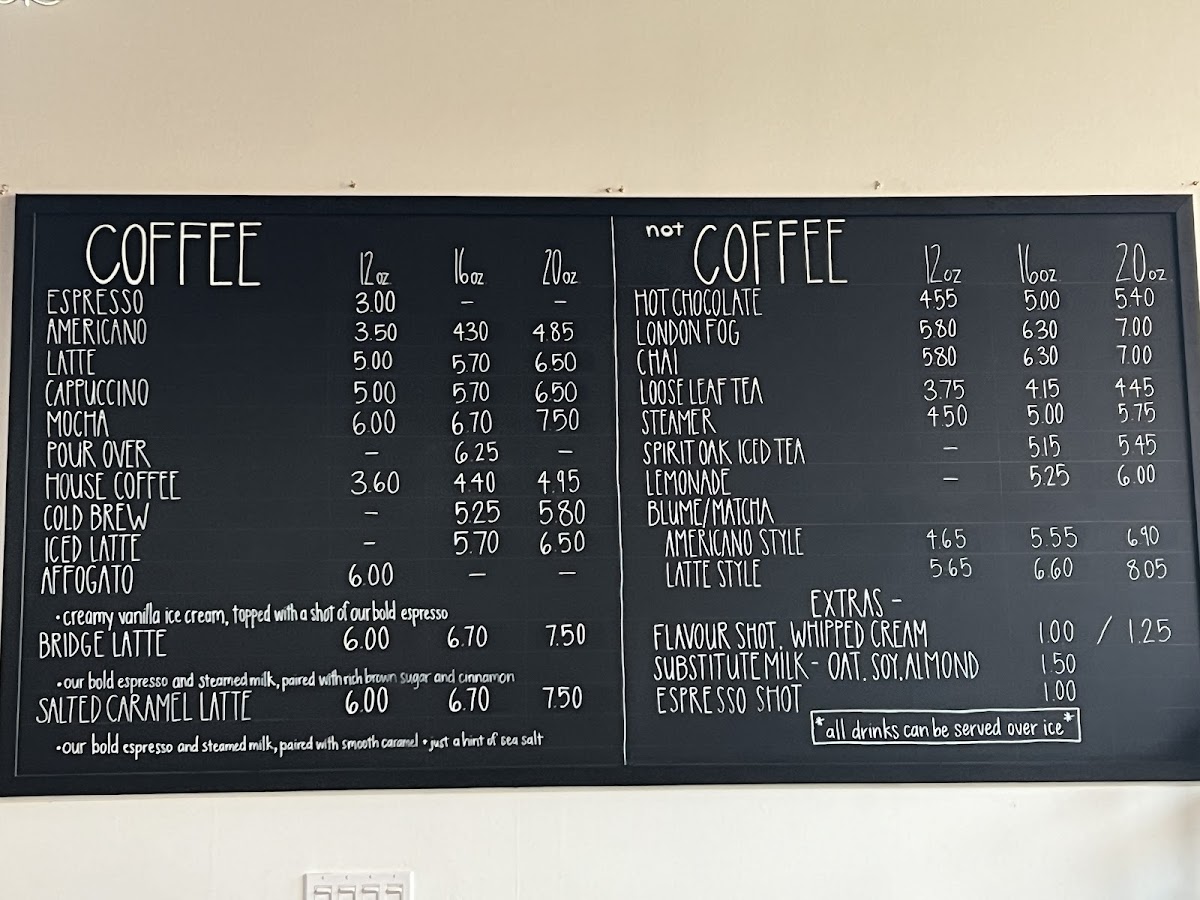 COFFEE 12oz 16oz 20oz
ESPRESSO 3.00 – –
AMERICANO 3.50 4.30 4.85
LATTE 5.00 5.70 6.50
CAPPUCCINO 5.00 5.70 6.50
MOCHA 6.00 6.70 7.50
POUR OVER – 6.25 –
HOUSE COFFEE 3.60 4.40 4.95
COLD BREW – 5.25 5.80
ICED LATTE – 5.70 6.50
AFFOGATO 6.00 – –
•creamy vanilla ice cream, topped with a shot of our bold espresso
BRIDGE LATTE 6.00 6.70 7.50
•our bold espresso and steamed milk, paired with rich brown sugar and cinnamon
SALTED CARAMEL LATTE 6.00 6.70 7.50
•our bold espresso and steamed milk, paired with smooth caramel • just a hint of sea salt
not COFFEE 12oz 16oz 20oz
HOT CHOCOLATE 4.55 5.00 5.40
LONDON FOG 5.80 6.30 7.00
CHAI 5.80 6.30 7.00
LOOSE LEAF TEA 3.75 4.15 4.45
STEAMER 4.50 5.00 5.75
SPIRIT OAK ICED TEA – 5.15 5.45
LEMONADE – 5.25 6.00
BLUME/MATCHA
AMERICANO STYLE 4.65 5.55 6.90
LATTE STYLE 5.65 6.60 8.05
EXTRAS –
FLAVOUR SHOT, WHIPPED CREAM 1.00 / 1.25
SUBSTITUTE MILK - OAT, SOY, ALMOND 1.50
ESPRESSO SHOT 1.00
*all drinks can be served over ice*